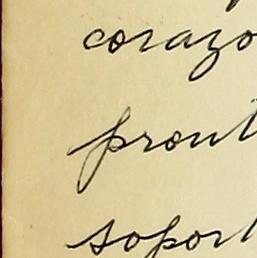 corazo
pront
soport